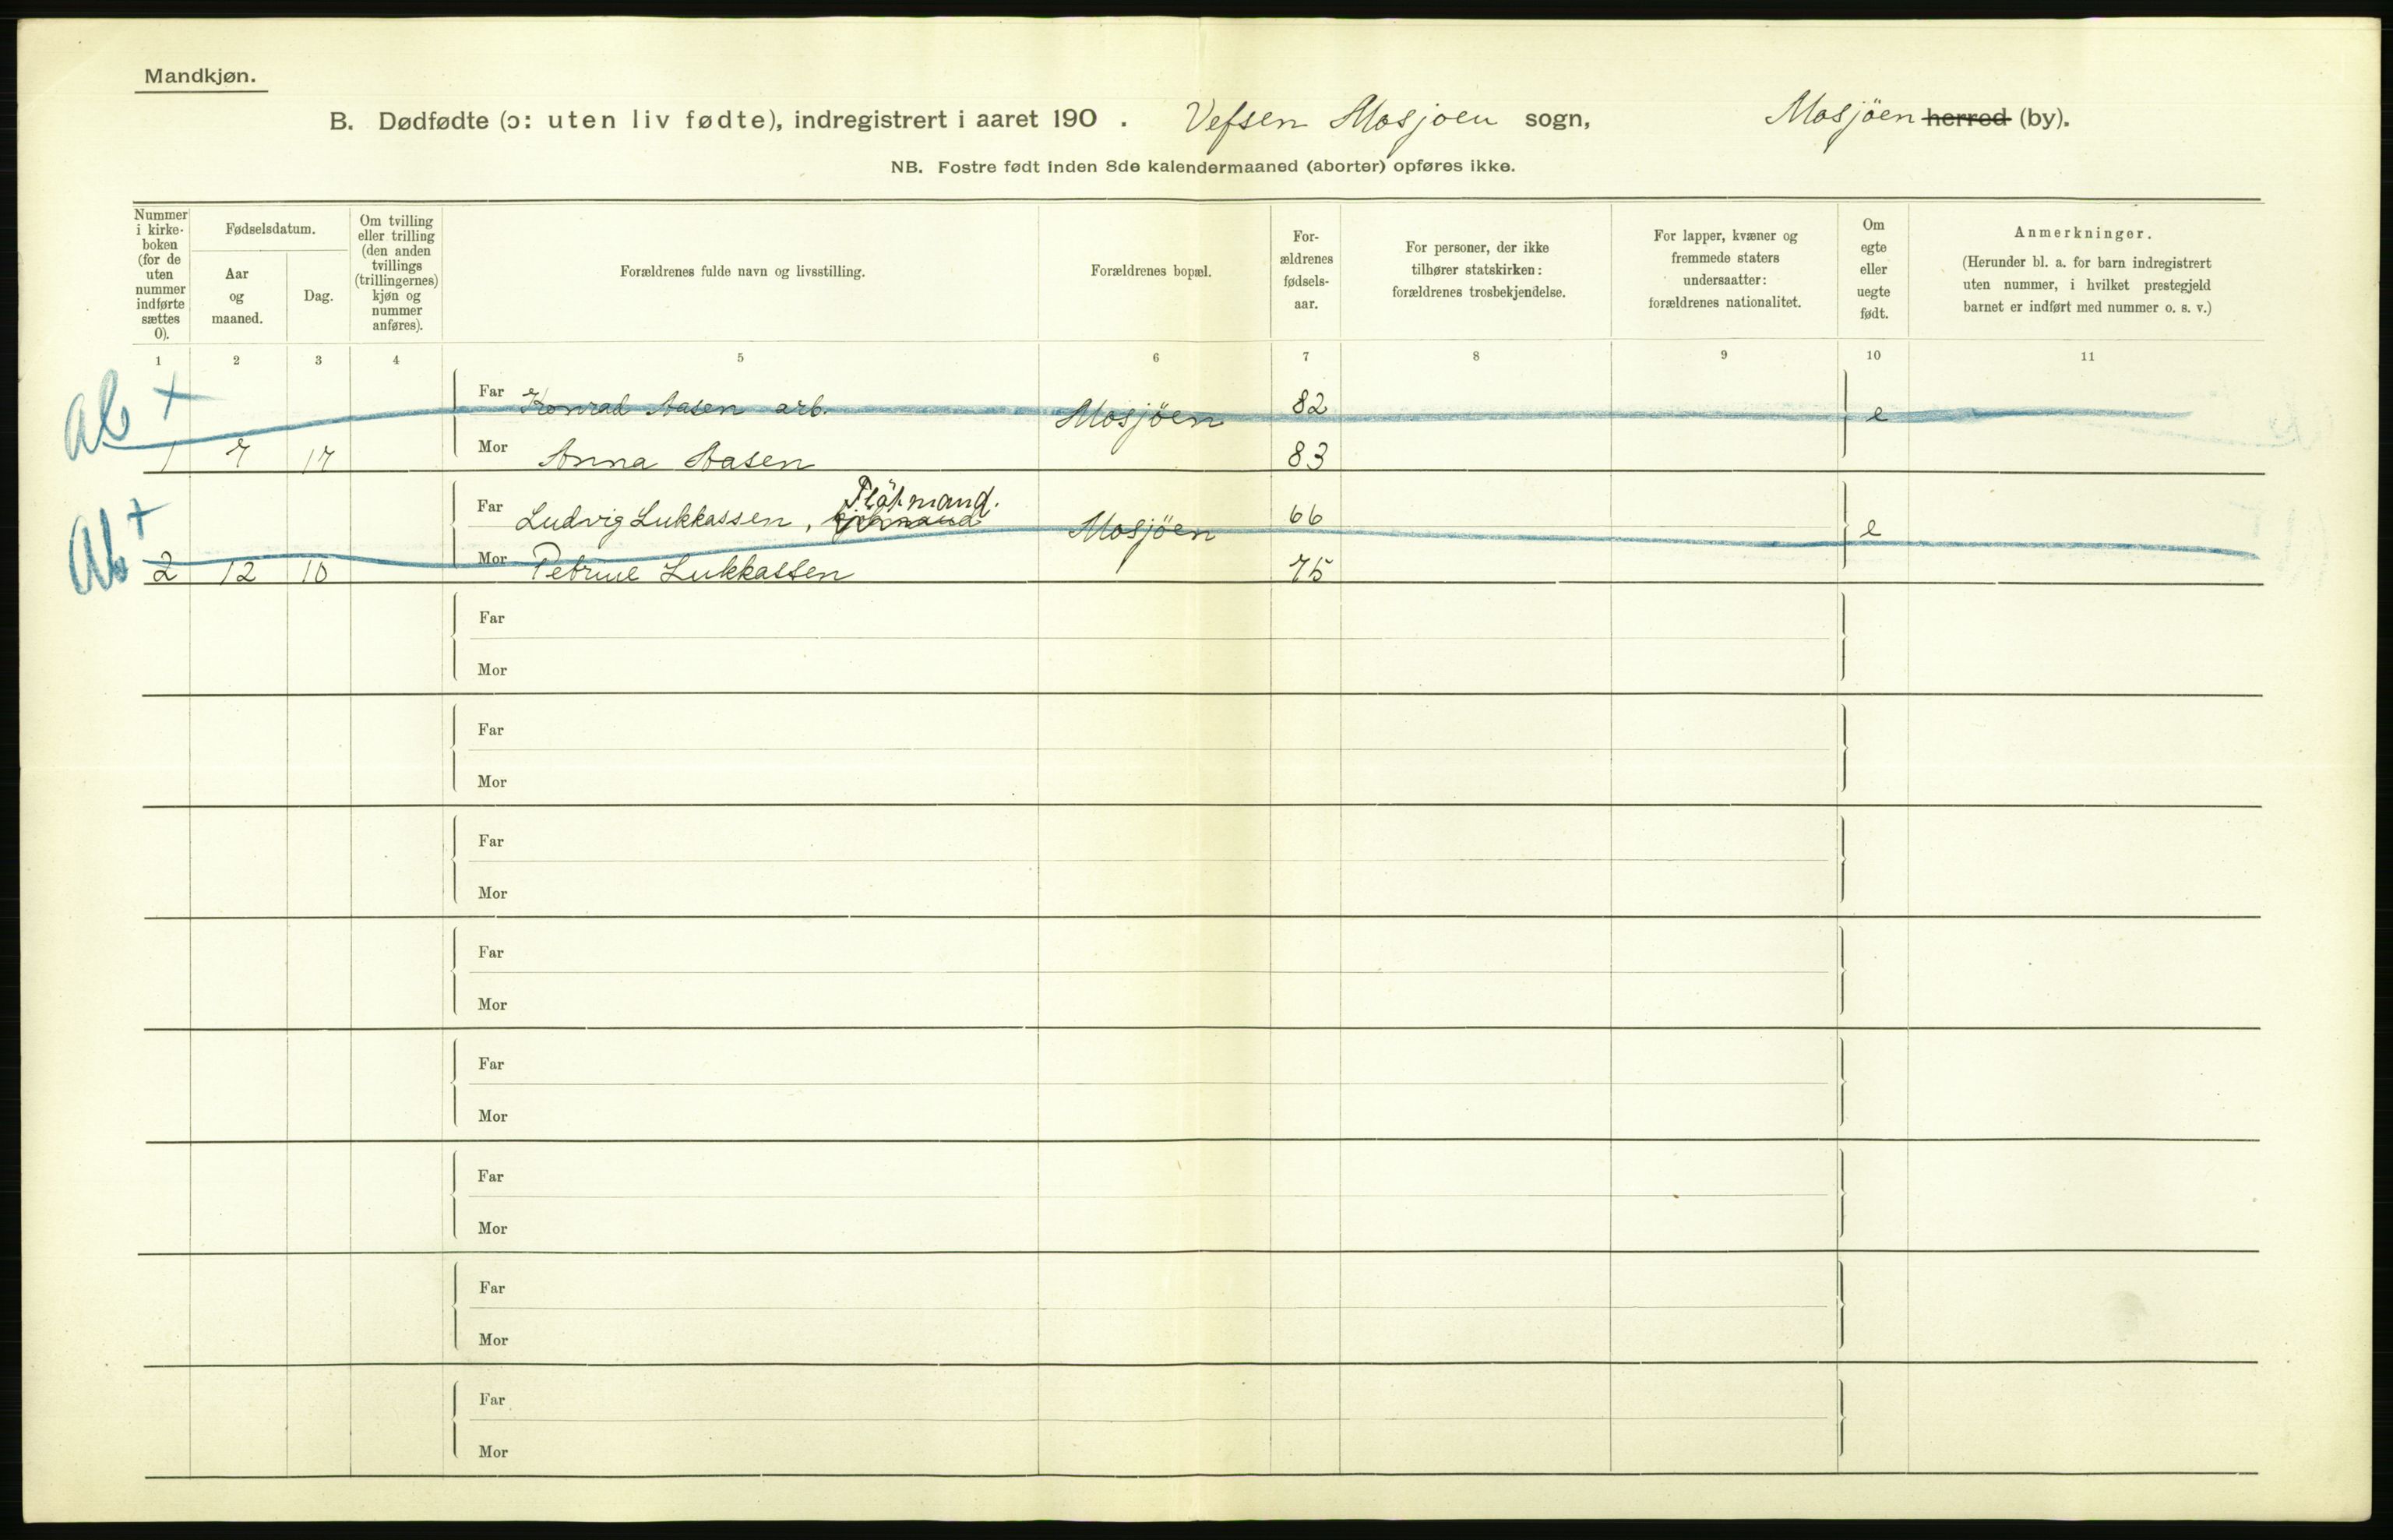 Mandkjøn.
B. Dødfødte (ɔ: uten liv fødte), indregistrert i aaret 190 . Vefsen Mosjoen sogn, Mosjöen herred (by).
NB. Fostre født inden 8de kalendermaaned (aborter) opføres ikke.
Nummer i kirke-boken (for de uten nummer indførte sættes 0).
Fødselsdatum.
Aar og maaned.
Dag.
Om tvilling eller trilling (den anden tvillings (trillingernes) kjøn og nummer anføres).
Forældrenes fulde navn og livsstilling.
Forældrenes bopæl.
For-ældrenes fødsels-aar.
For personer, der ikke tilhører statskirken: forældrenes trosbekjendelse.
For lapper, kvæner og fremmede staters undersaatter: forældrenes nationalitet.
Om egte eller uegte født.
Anmerkninger.
(Herunder bl. a. for barn indregistrert uten nummer, i hvilket prestegjeld barnet er indført med nummer o. s. v.)
1 2 3 4 5 6 7 8 9 10 11
Ab +
Far Konrad Aasen arb. Mosjöen 82 e
1 7 17 Mor Anna Aasen 83
Ab +
Far Ludvig Lukkassen, Flötmand. Mosjöen 66 e
2 12 10 Mor Petrine Lukkassen 75
Far
Mor
Far
Mor
Far
Mor
Far
Mor
Far
Mor
Far
Mor
Far
Mor
Far
Mor